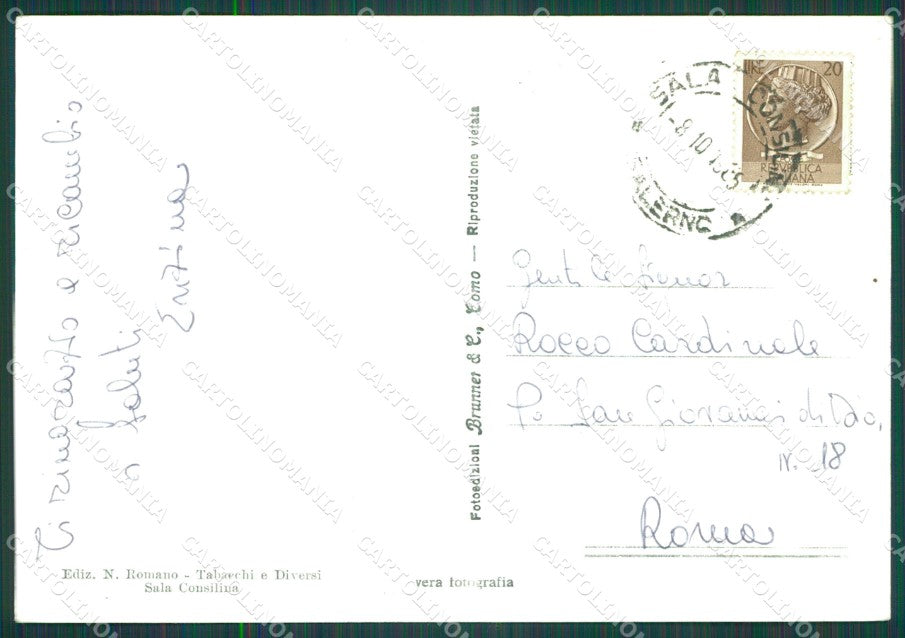 Ti ringrazio e ricambio
i saluti
Enzina
Ediz. N. Romano - Tabacchi e Diversi
Sala Consilina
vera fotografia
Fotoedizioni Brunner & C., Como — Riproduzione vietata
SALA CONSILINA
8 10
SALERNO
LIRE 20
REPVBBLICA
ITALIANA
Gent. le Signor
Rocco Cardinale
San Giovanni di Dio,
N. 18
Roma
CARTOLINOMANIA